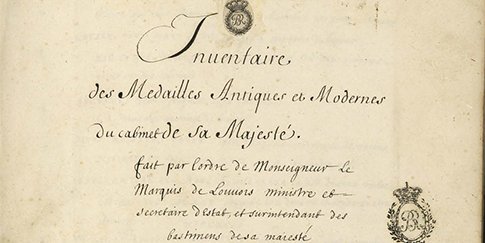 Inventaire
des Medailles Antiques et Modernes
du cabinet de sa Majesté.
fait par l'ordre de Monseigneur Le
Marquis de Louvois ministre et
secretaire d'estat et surintendant des
bastimens de sa maiesté